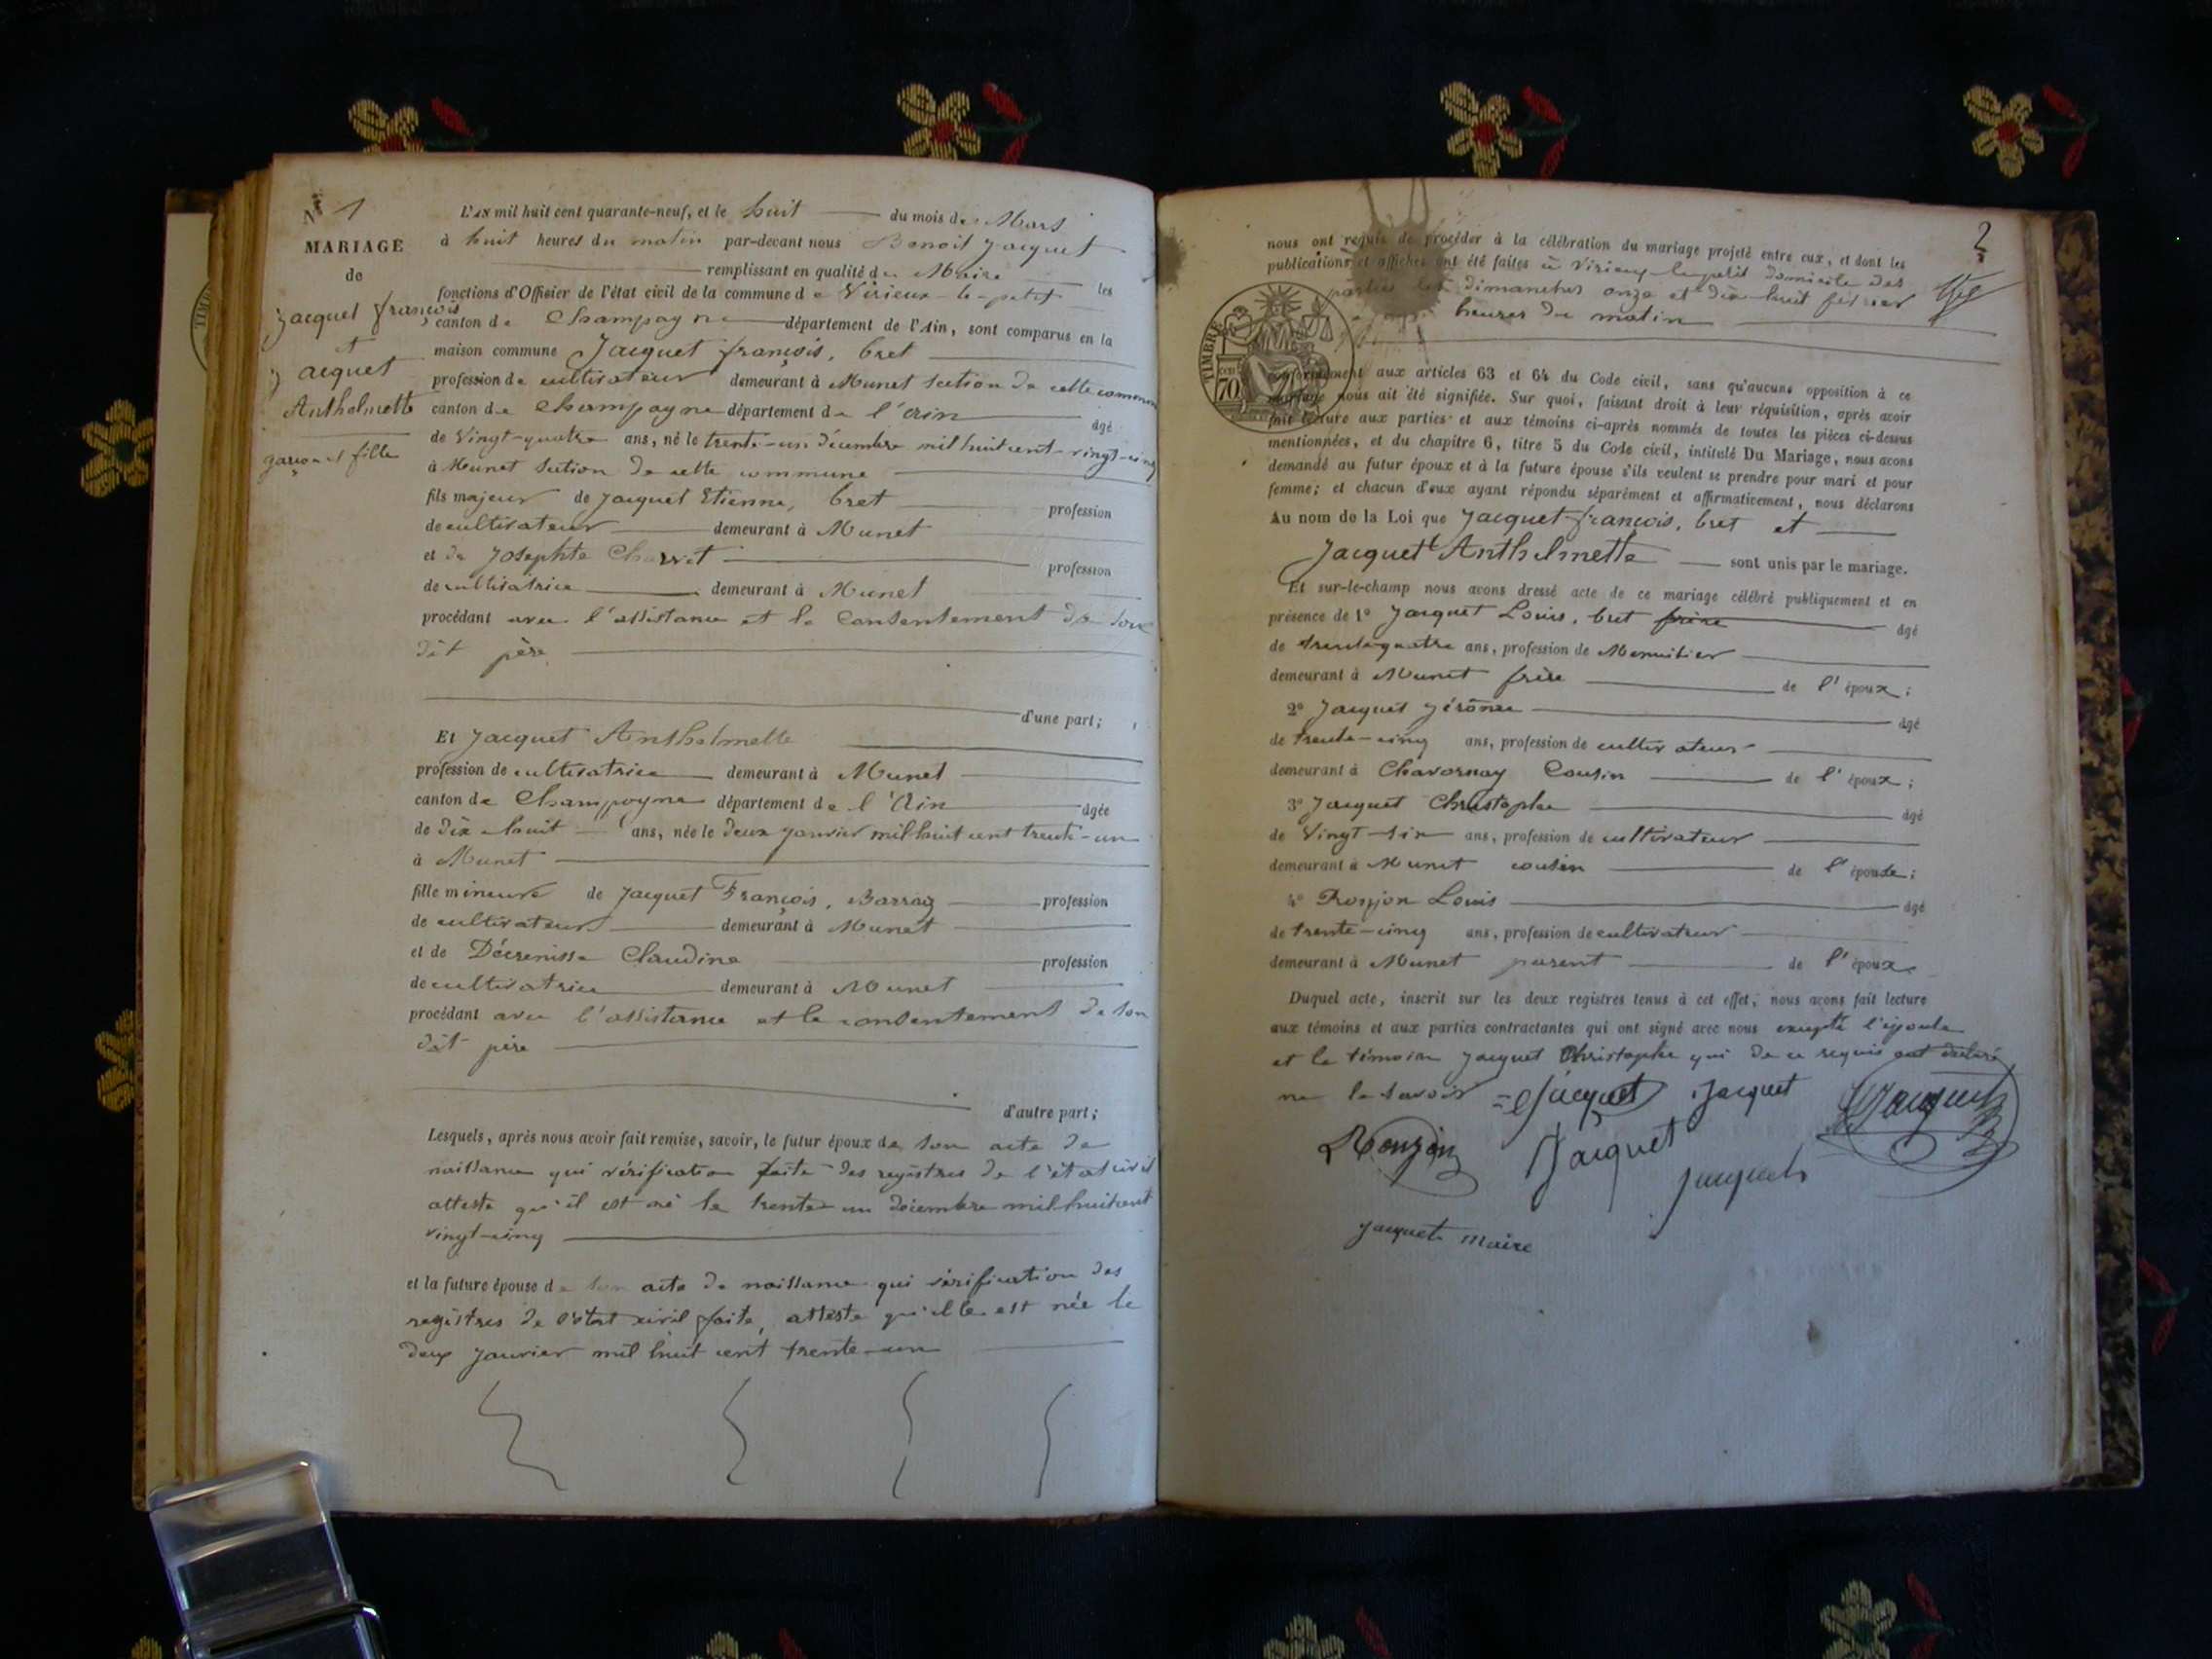 1
MARIAGE
de
Jacquet françois
et
Jacquet
Anthelmette
garçon et fille
L'AN mil huit cent quarante-neuf, et le huit du mois de Mars
à huit heures du matin par-devant nous Benoit Jacquet
remplissant en qualité de Maire les
fonctions d'Officier de l'état civil de la commune de Virieux-le-petit
canton de Champagne département de l'Ain, sont comparus en la
maison commune Jacquet françois, bret
profession de cultivateur demeurant à Munet section de cette commune
canton de Champagne département de l'Ain âgé
de Vingt-quatre ans, né le trente-un décembre mil huit cent-vingt-cinq
à Munet section de cette commune
fils majeur de Jacquet Etienne, bret profession
de cultivateur demeurant à Munet
et de Josephte profession
de cultivatrice demeurant à Munet
procédant avec l'assistance et le consentement de son
dit père
d'une part;
Et Jacquet Anthelmette
profession de cultivatrice demeurant à Munet
canton de Champagne département de l'Ain âgée
de dix-huit ans, née le deux janvier mil huit cent trente-un
à Munet
fille mineure de Jacquet François, Barray profession
de cultivateur demeurant à Munet
et de Décrenisse Claudine profession
de cultivatrice demeurant à Munet
procédant avec l'assistance et le consentement de son
dit père
d'autre part;
Lesquels, après nous avoir fait remise, savoir, le futur époux de son acte de
naissance qui vérification faite des registres de l'état civil
atteste qu'il est né le trente un décembre mil huit cent
vingt-cinq
et la future épouse de son acte de naissance qui vérification des
registres de l'état civil faite, atteste qu'elle est née le
deux janvier mil huit cent trente-un
2
nous ont requis de procéder à la célébration du mariage projeté entre eux, et dont les
publications et affiches ont été faites à Virieux-le-petit domicile des
parties les dimanches onze et dix-huit février
heures du matin
TIMBRE
70
conformément aux articles 63 et 64 du Code civil, sans qu'aucune opposition à ce
mariage nous ait été signifiée. Sur quoi, faisant droit à leur réquisition, après avoir
fait lecture aux parties et aux témoins ci-après nommés de toutes les pièces ci-dessus
mentionnées, et du chapitre 6, titre 5 du Code civil, intitulé Du Mariage, nous avons
demandé au futur époux et à la future épouse s'ils veulent se prendre pour mari et pour
femme; et chacun d'eux ayant répondu séparément et affirmativement, nous déclarons
Au nom de la Loi que Jacquet françois, bret et
Jacquet Anthelmette sont unis par le mariage.
Et sur-le-champ nous avons dressé acte de ce mariage célébré publiquement et en
présence de 1º Jacquet Louis, bret frère âgé
de trente-quatre ans, profession de Menuisier
demeurant à Munet frère de l'époux;
2º Jacquet Jérôme âgé
de trente-cinq ans, profession de cultivateur
demeurant à Chavornay Cousin de l'époux;
3º Jacquet Christophe âgé
de Vingt-six ans, profession de cultivateur
demeurant à Munet cousin de l'épouse;
4º Ronjon Louis âgé
de trente-cinq ans, profession de cultivateur
demeurant à Munet parent de l'époux
Duquel acte, inscrit sur les deux registres tenus à cet effet, nous avons fait lecture
aux témoins et aux parties contractantes qui ont signé avec nous excepté l'épouse
et le témoin Jacquet Christophe qui de ce requis ont déclaré
ne le savoir Jacquet Jacquet Jacquet
Ronjon Jacquet
Jacquet
Jacquet maire